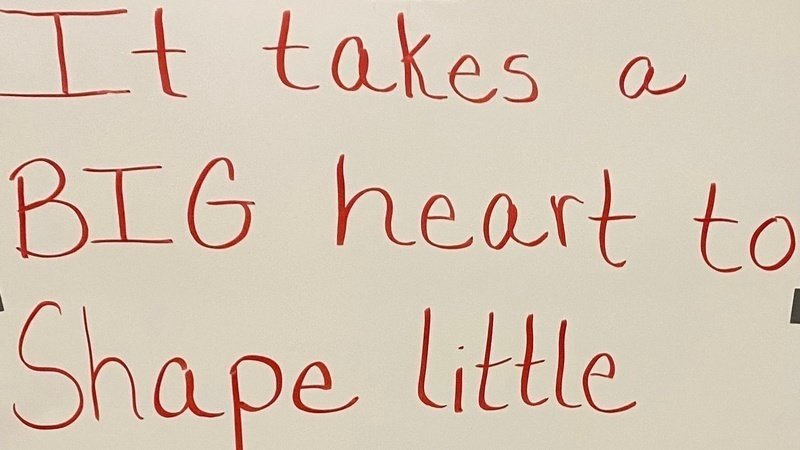 It takes a
BIG heart to
Shape little